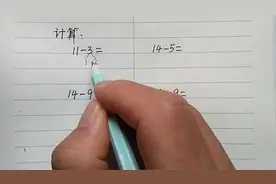 计算:
11-3= 14-5=
1
14-9 -9=